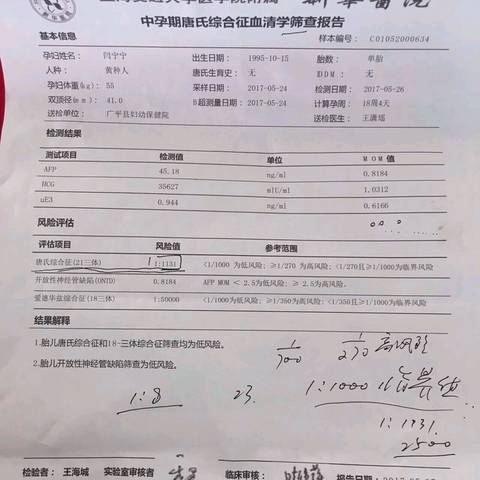 上海交通大学医学院附属 新华医院
中孕期唐氏综合征血清学筛查报告
基本信息 样本编号: C01052000634
孕妇姓名: 闫宁宁 出生日期: 1995-10-15 胎数: 单胎
人种: 黄种人 唐氏生育史: 无 IDDM: 无
孕妇体重(kg): 55 采样日期: 2017-05-24 检测日期: 2017-05-26
双顶径(mm): 41.0 B超测量日期: 2017-05-24 计算孕周: 18周4天
送检单位: 广平县妇幼保健院 送检医生: 王潇瑶
检测结果
测试项目 检测值 单位 MOM 值
AFP 45.18 ng/ml 0.8184
HCG 35627 mIU/ml 1.0312
uE3 0.944 ng/ml 0.6166
风险评估
评估项目 风险值 参考范围
唐氏综合征(21三体) 1:1131 <1/1000 为低风险; ≥1/270 为高风险; <1/270且≥1/1000为临界风险
开放性神经管缺陷(ONTD) 0.8184 AFP MOM < 2.5为低风险; ≥ 2.5为高风险.
爱德华兹综合征(18三体) 1:50000 <1/1000为低风险; ≥1/350为高风险; <1/350且≥1/1000为临界风险
结果解释
1.胎儿唐氏综合征和18-三体综合征筛查均为低风险。
2.胎儿开放性神经管缺陷筛查为低风险。
1/700 1/270 高风险
1:8 23. 1:1000 临界值
1:1131
2500
检验者: 王海城 实验室审核者 临床审核: 报告日期:2017-05